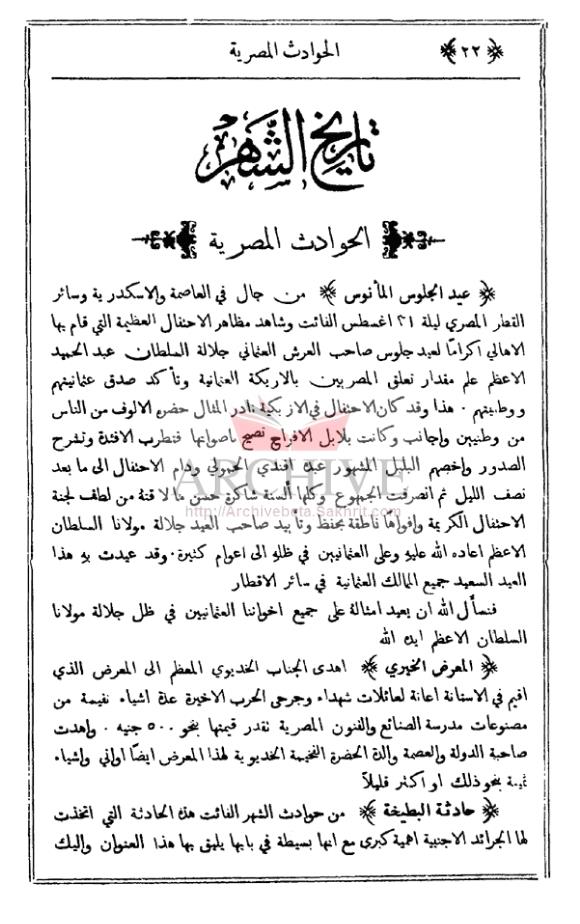 ﴿ ٢٢ ﴾ الحوادث المصرية
تاريخ الشهر
الحوادث المصرية
﴿ عيد الجلوس المأنوس ﴾ من جال في العاصمة والاسكندرية وسائر
القطر المصري ليلة ٣١ اغسطس الفائت وشاهد مظاهر الاحتفال العظيمة التي قام بها
الاهالي اكرامًا لعيد جلوس صاحب العرش العثماني جلالة السلطان عبد الحميد
الاعظم علم مقدار تعلق المصريين بالاريكة العثمانية وتأكد صدق عثمانيتهم
ووطنيتهم . هذا وقد كان الاحتفال في الازبكية نادر المثال حضره الالوف من الناس
من وطنيين واجانب وكانت بلابل الافراح تصيح باصواتها فتطرب الافئدة وتشرح
الصدور واخصهم البلبل المشهور عبده افندي الحمولي ودام الاحتفال الى ما بعد
نصف الليل ثم انصرفت الجموع وكلها ألسنة شاكرة حسن ما لاقته من لطف لجنة
الاحتفال الكريمة وافواهًا ناطقة بحفظ وتأييد صاحب العيد جلالة مولانا السلطان
الاعظم اعاده الله عليهِ وعلى العثمانيين في ظلهِ الى اعوام كثيرة . وقد عيدت بهِ هذا
العيد السعيد جميع الممالك العثمانية في سائر الاقطار
فنسأل الله ان يعيد امثالهُ على جميع اخواننا العثمانيين في ظل جلالة مولانا
السلطان الاعظم ايده الله
﴿ المعرض الخيري ﴾ اهدى الجناب الخديوي المعظم الى المعرض الذي
اقيم في الاستانة اعانة لعائلات شهداء وجرحى الحرب الاخيرة عدة اشياء نفيسة من
مصنوعات مدرسة الصنائع والفنون المصرية تقدر قيمتها بنحو ٥٠٠ جنيه . واهدت
صاحبة الدولة والعصمة والدة الحضرة الفخيمة الخديوية لهذا المعرض ايضًا اواني واشياء
ثمينة بنحو ذلك او اكثر قليلًا
﴿ حادثة البطيخة ﴾ من حوادث الشهر الفائت هذه الحادثة التي اتخذت
لها الجرائد الاجنبية اهمية كبرى مع انها بسيطة في بابها يليق بها هذا العنوان واليك
ARCHIVE
http://Archivebeta.Sakhrit.com